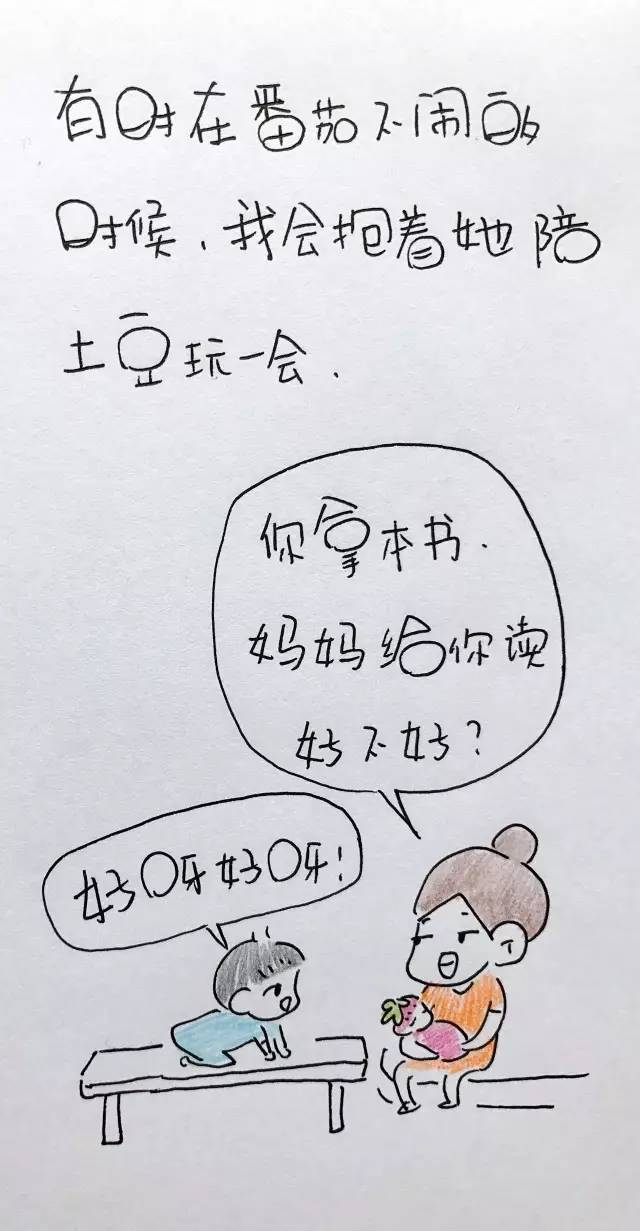 有时在番茄不闹的
时候，我会抱着她陪
土豆玩一会.
你拿本书.
妈妈给你读
好不好？
好呀好呀！